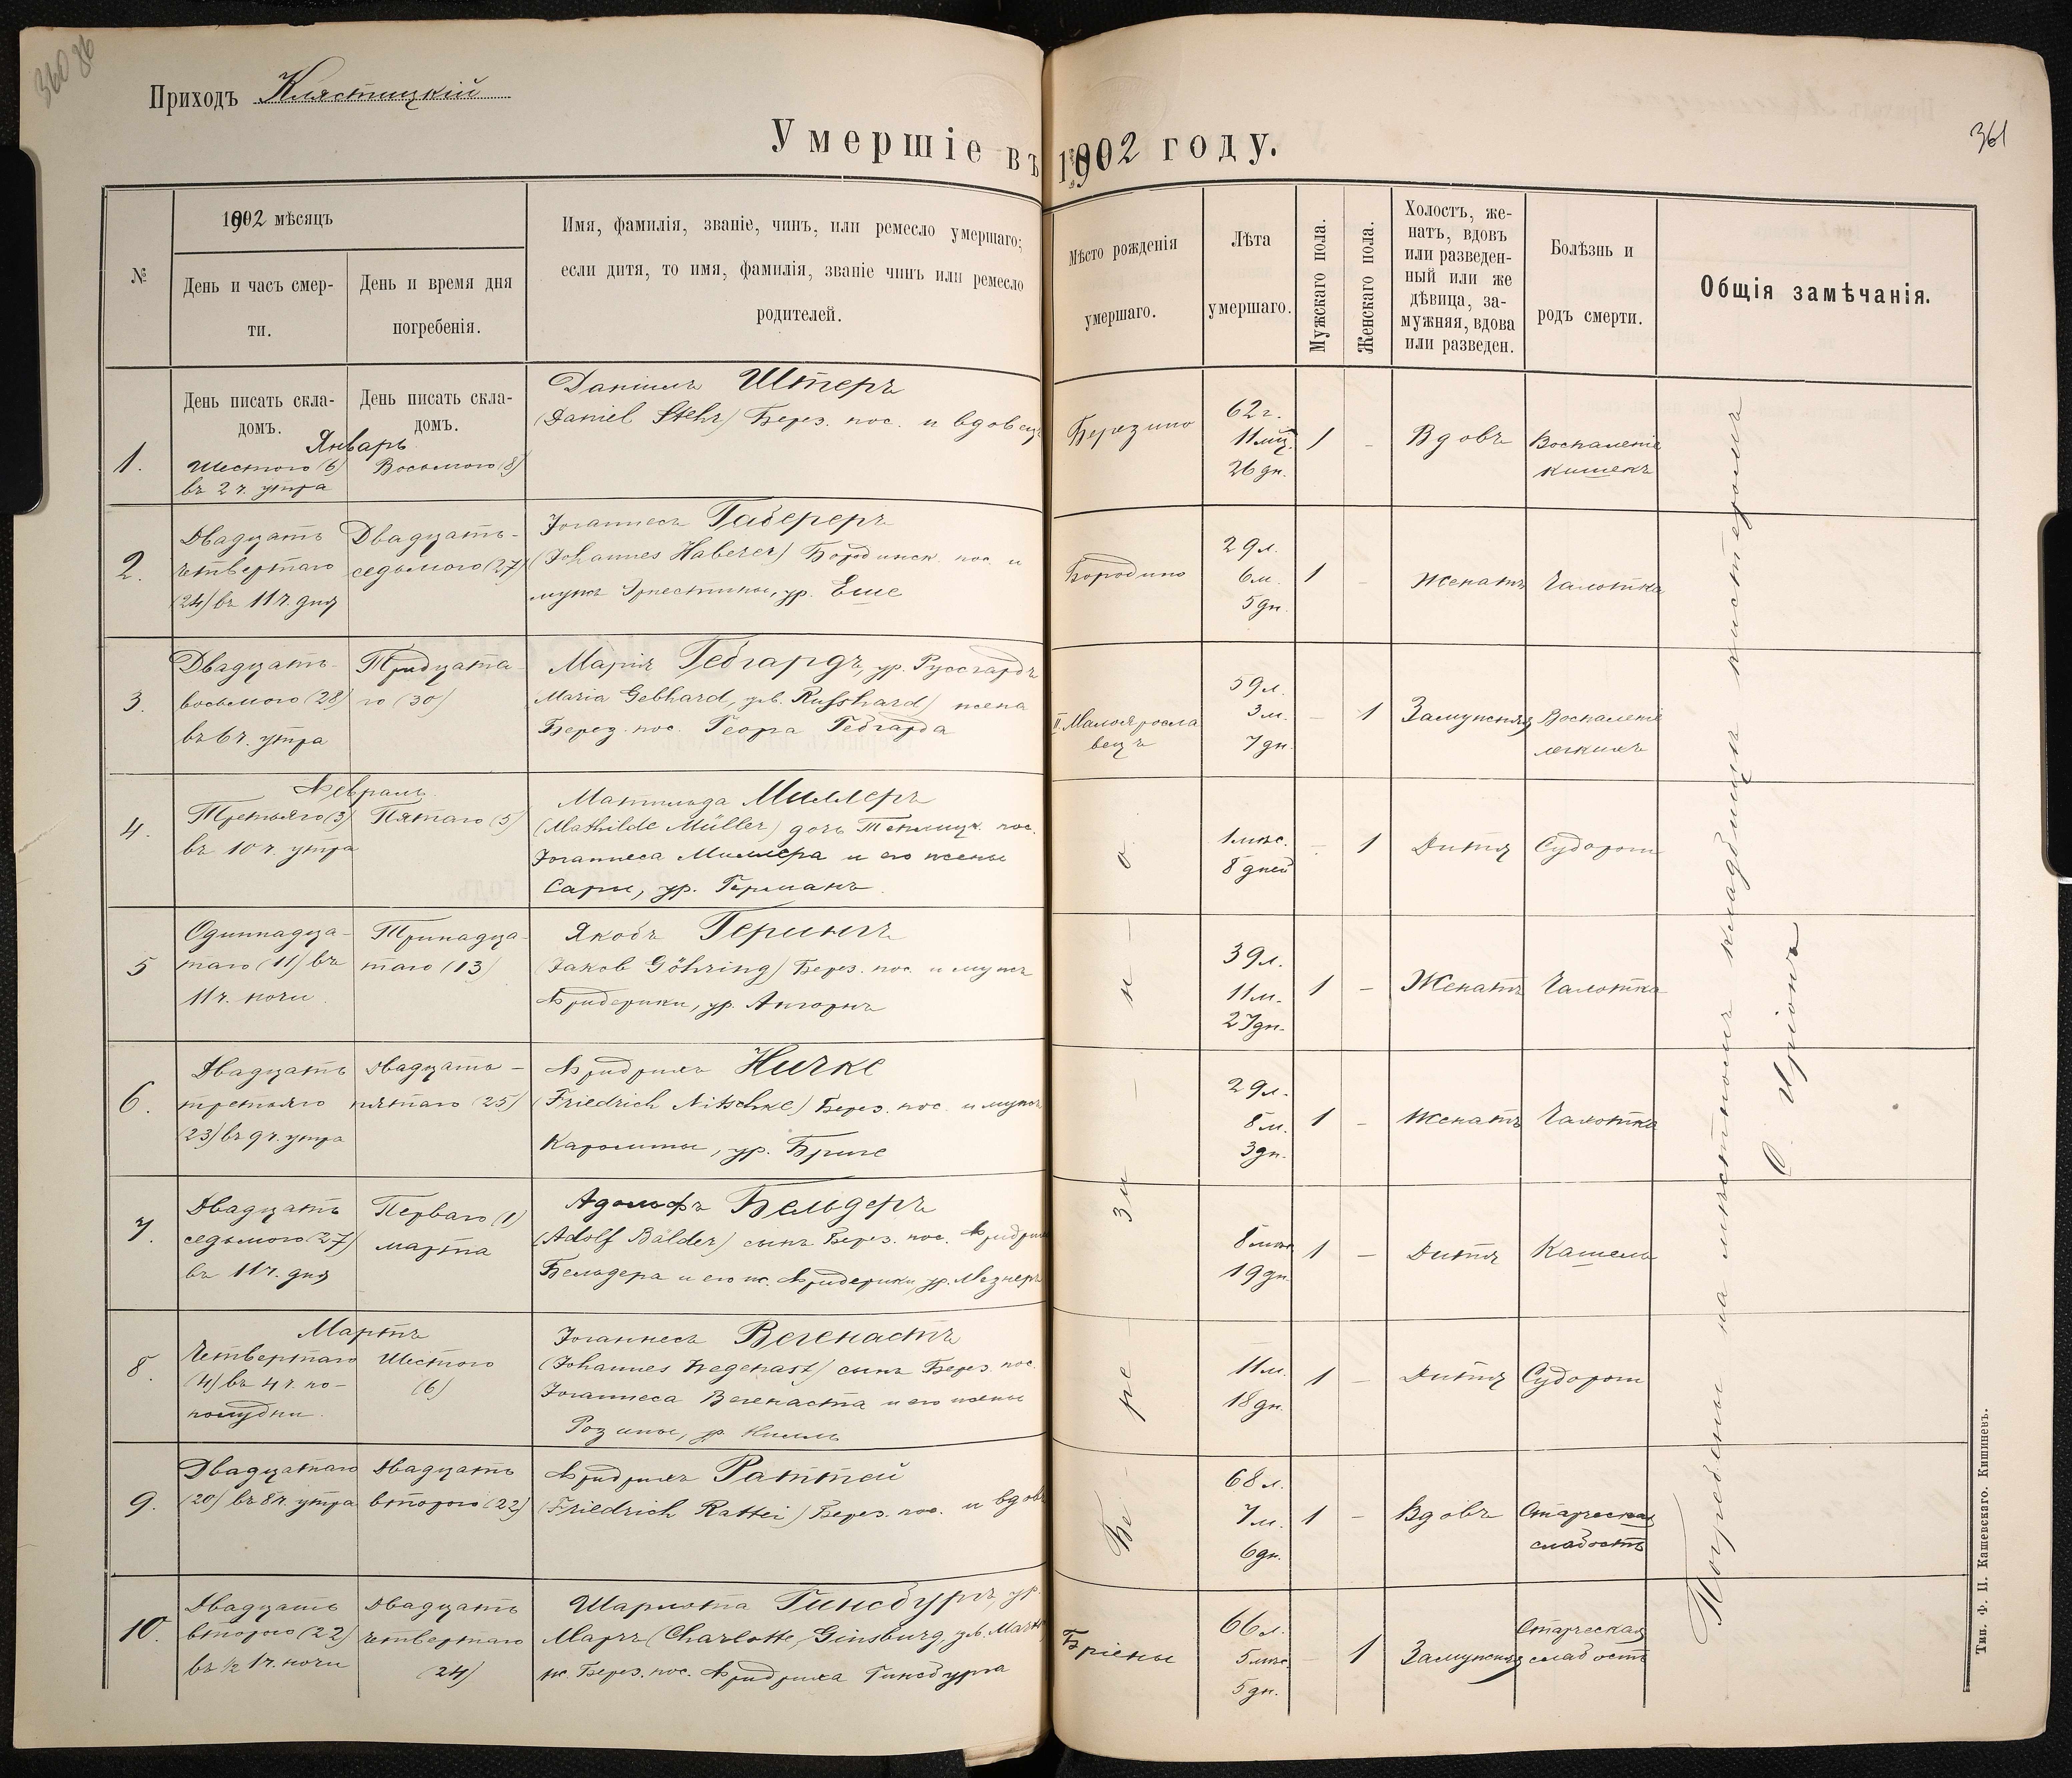 360 86
Приходъ Клястицкій
Умершіе въ 1902 году.
361
№
1902 мѣсяцъ
День и часъ смер-
ти.
День и время дня
погребенія.
Имя, фамилія, званіе, чинъ, или ремесло умершаго;
если дитя, то имя, фамилія, званіе чинъ или ремесло
родителей.
Мѣсто рожденія
умершаго.
Лѣта
умершаго.
Мужскаго пола.
Женскаго пола.
Холостъ, же-
натъ, вдовъ
или разведен-
ный или же
дѣвица, за-
мужняя, вдова
или разведен.
Болѣзнь и
родъ смерти.
Общія замѣчанія.
День писать скла-
домъ.
День писать скла-
домъ.
Январь
1.
Шестого (6)
въ 2 ч. утра
Восьмого (8)
Даніилъ Штеръ
(Daniel Stehr) Берез. пос. и вдовецъ
Березино
62 г.
11 мц.
26 дн.
1
-
Вдовъ
Воспаленіе
кишекъ
2.
Двадцать
четвертаго
(24) въ 11 ч. дня
Двадцать-
седьмого (27)
Іоганнесъ Габереръ
(Johannes Haberer) Бородинск. пос. и
мужъ Эрнестины, ур. Еше
Бородино
29 л.
6 м.
5 дн.
1
-
Женатъ
Чахотка
3.
Двадцать-
восьмого (28)
въ 6 ч. утра
Тридцата-
го (30)
Марія Гебгардъ, ур. Руссгардъ
(Maria Gebhard, geb. Russhard) жена
Берез. пос. Георга Гебгарда
II Малояросла
вецъ
59 л.
3 м.
7 дн.
-
1
Замужняя
Воспаленіе
легкихъ
Февраль
4.
Третьяго (3)
въ 10 ч. утра
Пятаго (5)
Матильда Миллеръ
(Mathilde Müller) дочь Теплицк. пос.
Іоганнеса Миллера и его жены
Сары, ур. Германъ.
1 мѣс.
8 дней
-
1
Дитя
Судороги
5
Одиннадца-
таго (11) въ
11 ч. ночи.
Тринадца-
таго (13)
Якобъ Герингъ
(Jakob Göhring) Берез. пос. и мужъ
Фридерики, ур. Ангорнъ
39 л.
11 м.
27 дн.
1
-
Женатъ
Чахотка
6.
Двадцать
третьяго
(23) въ 9 ч. утра
Двадцать-
пятаго (25)
Фридрихъ Ничке
(Friedrich Nitschke) Берез. пос. и мужъ
Каролины, ур. Бриге
29 л.
8 м.
3 дн.
1
-
Женатъ
Чахотка
7.
Двадцать
седьмого (27)
въ 11 ч. дня
Перваго (1)
марта
Адольфъ Бельдеръ
(Adolf Bälder) сынъ Берез. пос. Фридриха
Бельдера и его ж. Фридерики, ур. Мезнеръ
8 мѣс.
19 дн.
1
-
Дитя
Кашель
Мартъ
8.
Четвертаго
(4) въ 4 ч. по-
полудни.
Шестого
(6)
Іоганнесъ Вегенастъ
(Johannes Wegenast) сынъ Берез. пос.
Іоганнеса Вегенаста и его жены
Розины, ур. Нилль
11 м.
18 дн.
1
-
Дитя
Судороги
9.
Двадцатаго
(20) въ 8 ч. утра
Двадцать
второго (22)
Фридрихъ Раттей
(Friedrich Rattei) Берез. пос. и вдовъ
68 л.
7 м.
6 дн.
1
-
Вдовъ
Старческая
слабость
Бе - ре - зи - н - о
10.
Двадцать
второго (22)
въ ½ 1 ч. ночи
Двадцать
четвертаго
(24)
Шарлота Гинсбургъ, ур.
Мартъ (Charlotte Ginsburg, geb. Mart)
ж. Берез. пос. Фридриха Гинсбурга
Бріены
66 л.
5 мѣс.
5 дн.
-
1
Замужняя
Старческая
слабость
Погребены на мѣстномъ кладбищѣ пасторомъ
Тип. Ф. П. Кашевскаго. Кишиневъ.